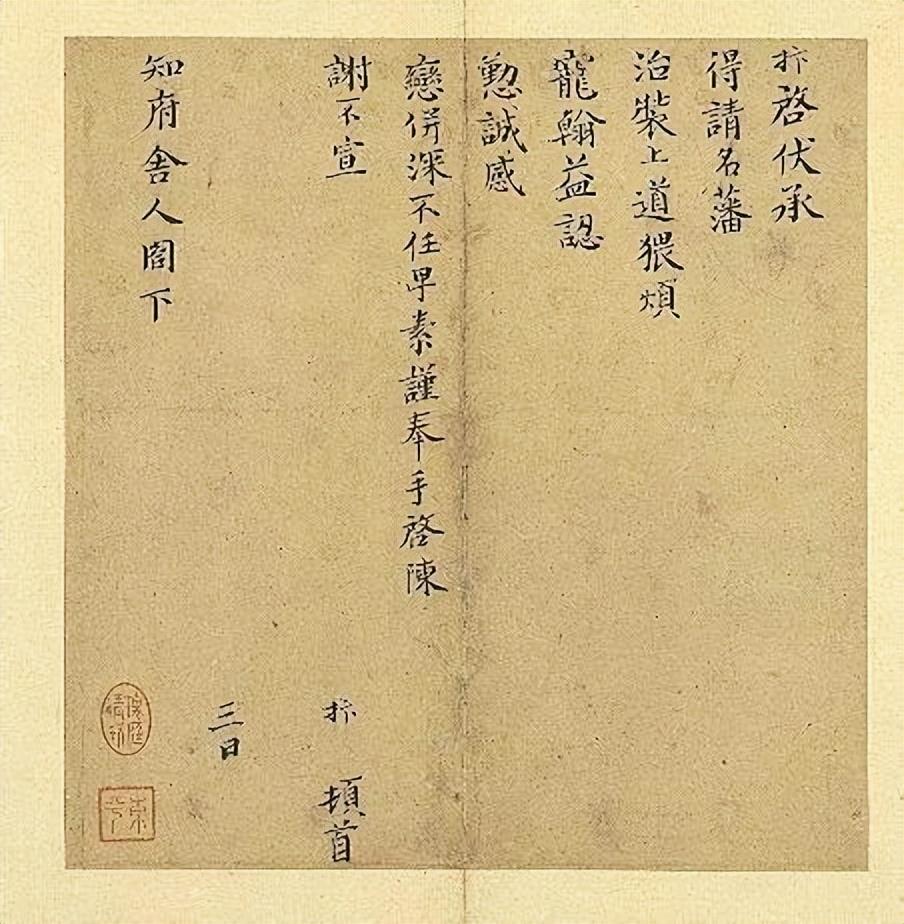 抃啓伏承
得請名藩
治裝上道猥煩
寵翰益認
懃誠感
戀併深不任素謹奉手啓陳
謝不宣
抃 頓首
三日
知府舍人閤下